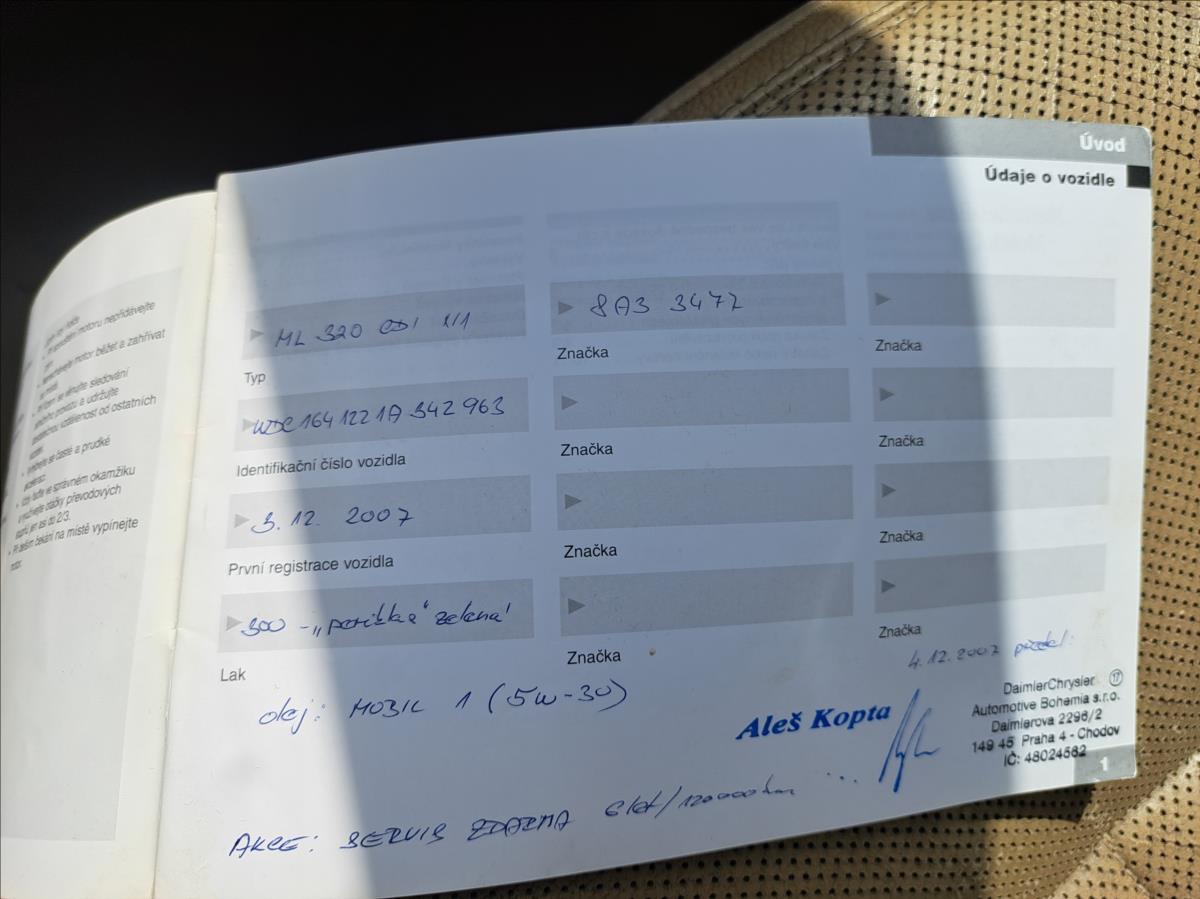 nepřidávejte
motor běžet a zahřívat
věnujte sledování
provozu a udržujte
vzdálenost od ostatních
se časté a prudké
ve správném okamžiku
otáčky převodových
jen asi do 2/3.
čekání na místě vypínejte
motor.
Úvod
Údaje o vozidle
ML 320 CDI
Typ
WDC 164 122 1A 342 963
Identifikační číslo vozidla
3. 12. 2007
První registrace vozidla
300 - „perišká" zelená
Lak
8A3 3472
Značka
Značka
Značka
Značka
Značka
Značka
Značka
Značka
olej: MOBIL 1 (5W-30)
4.12.2007
Aleš Kopta
DaimlerChrysler 17
Automotive Bohemia s.r.o.
Daimlerova 2296/2
149 45 Praha 4 - Chodov
IČ: 48024562
AKCE: SERVIS ZDARMA 6 let/120000km ...
1